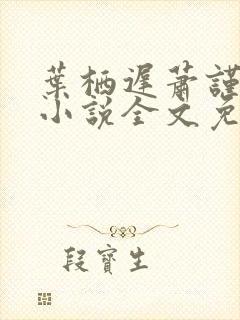 葉栖遲蕭謹
小說全文免
段寶生